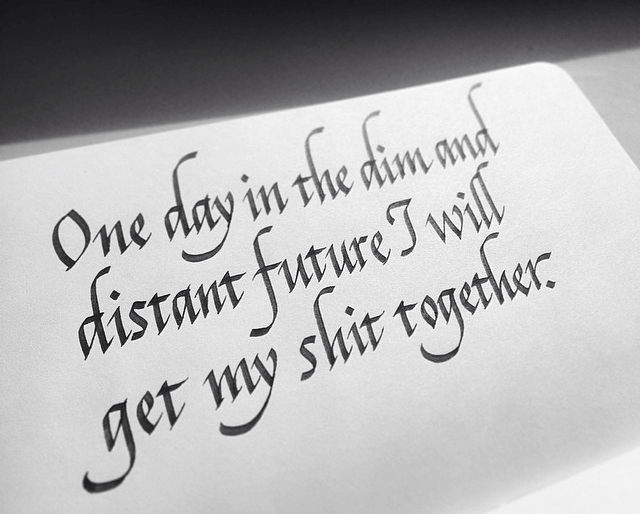 One day in the dim and
distant future I will
get my shit together.